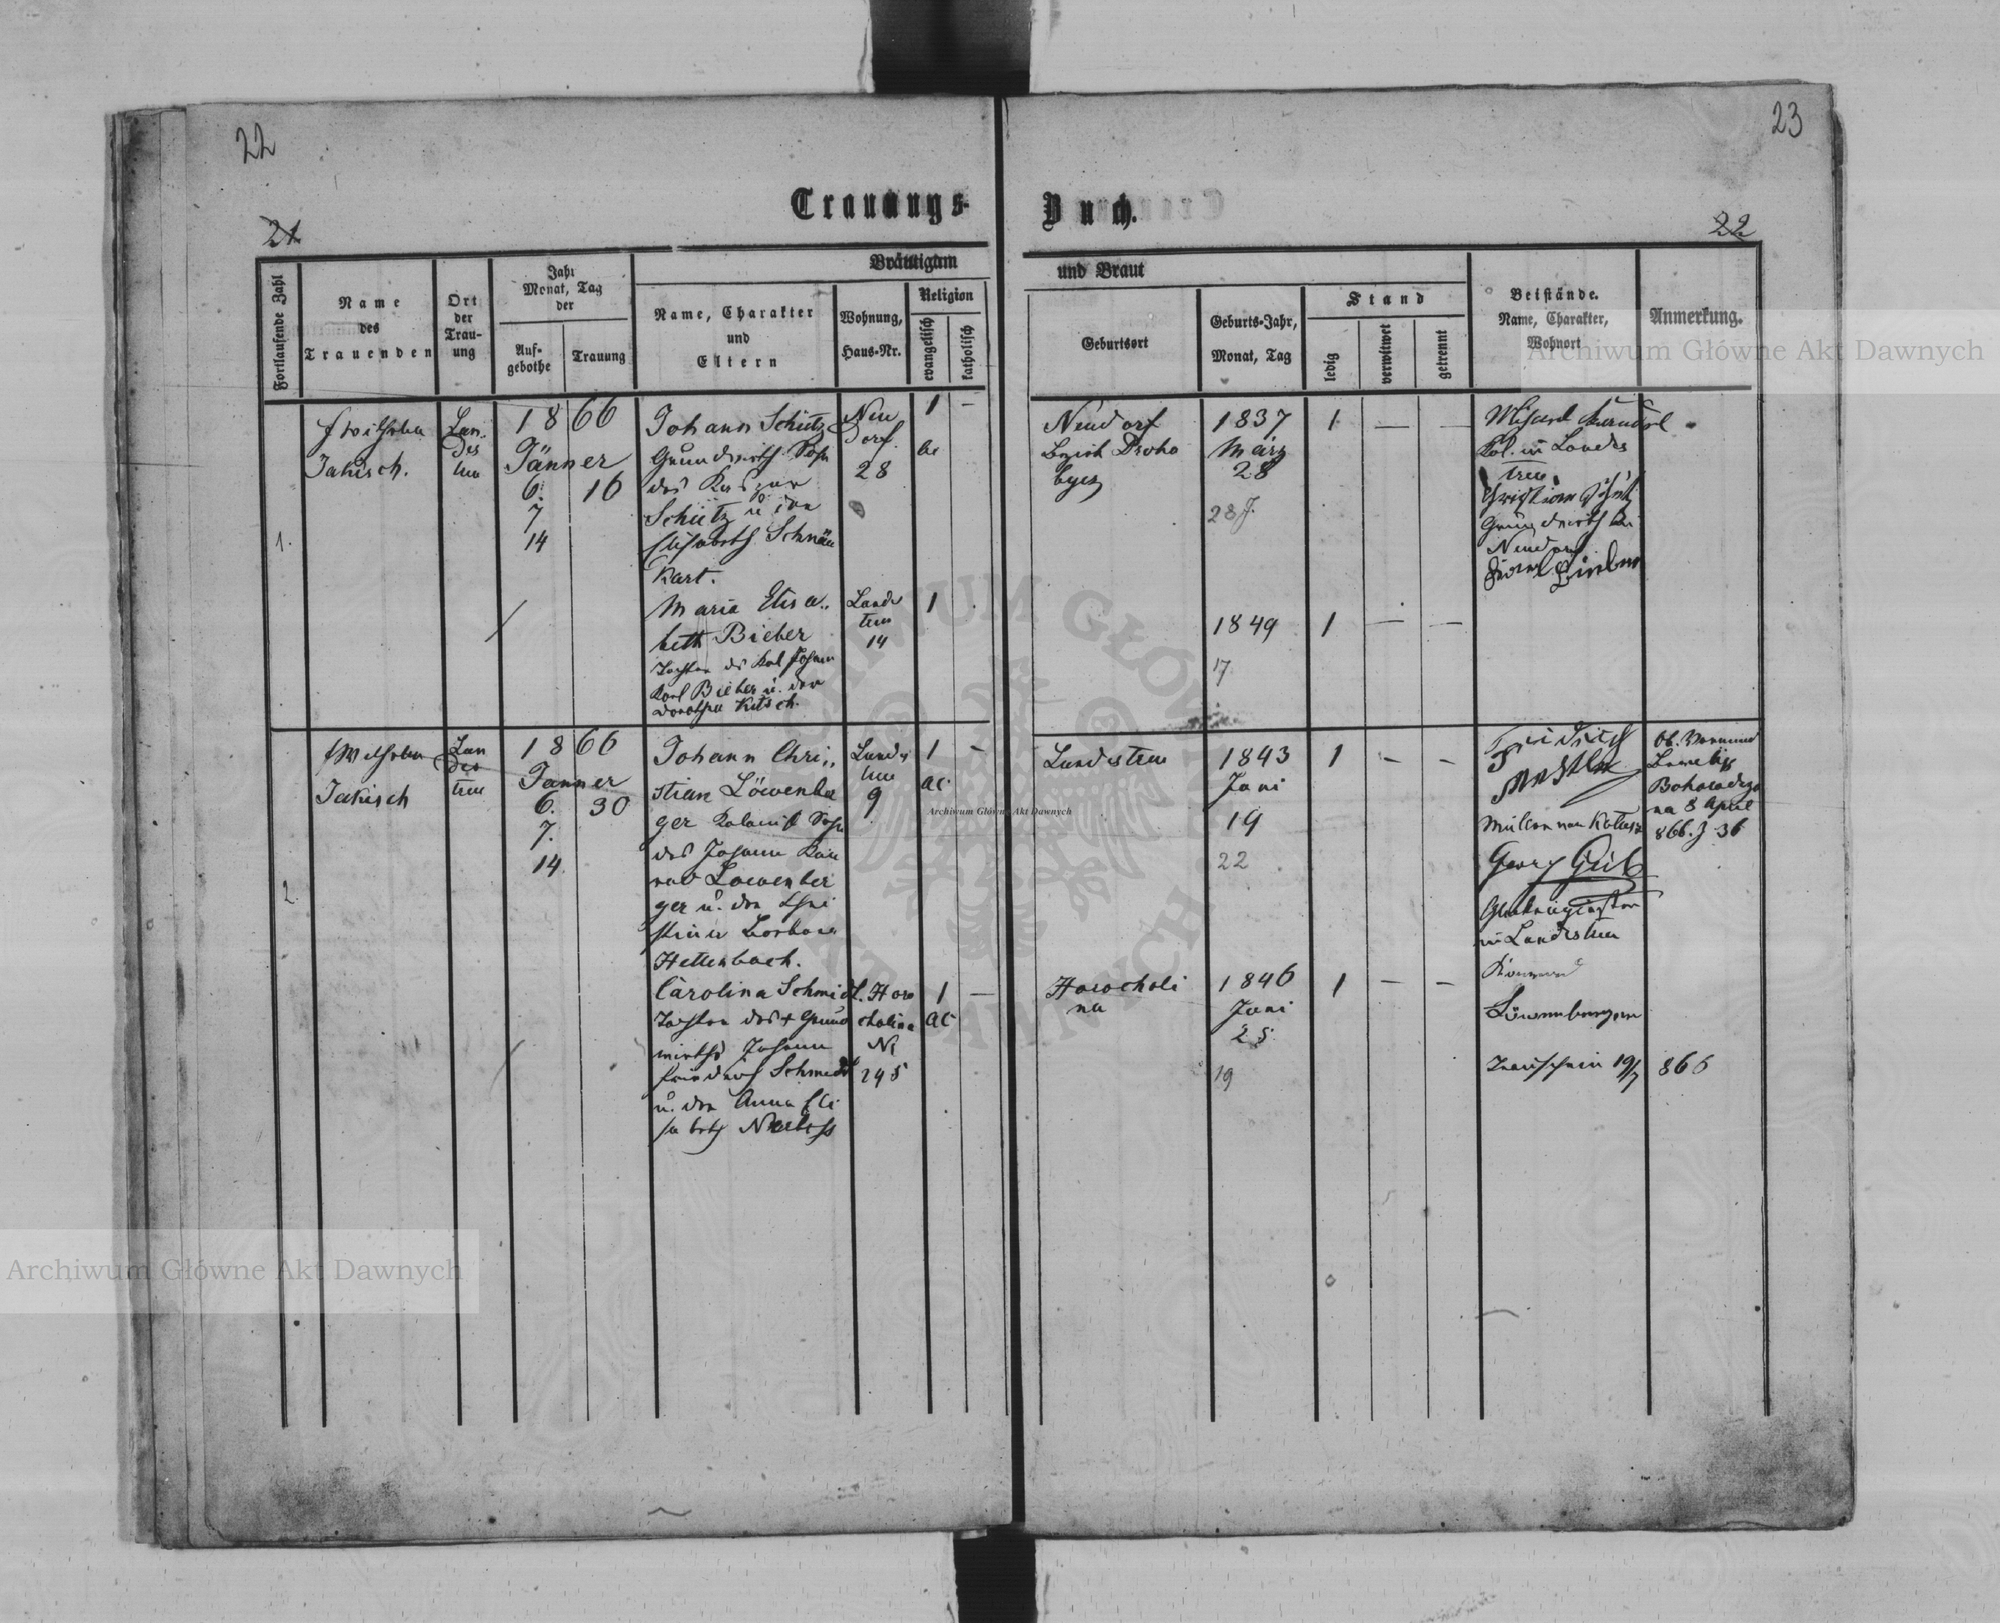 22
23
Trauungs-
Buch.
21
22
Fortlaufende Zahl
Name
des
Trauenden
Ort
der
Trau-
ung
Jahr
Monat, Tag
der
Auf-
gebothe
Trauung
Bräutigam
Name, Charakter
und
Eltern
Wohnung,
Haus-Nr.
Religion
evangelisch
katholisch
und Braut
Geburtsort
Geburts-Jahr,
Monat, Tag
Stand
ledig
verwitwet
getrennt
Beistände.
Name, Charakter,
Wohnort
Anmerkung.
1.
Jakisch.
Lan
des
treu
1866
Jänner
6. 16
7.
14
Johann Schütz
Grundwirth Sohn
des
Schütz u. der
Elisabeth Schnäu
kart.
Neu
dorf
28
1 –
Neudorf
Bezirk Droho
bycz
1837
März
28
28 J.
1 – –
Kol. in Landes
treu.
Christian Schütz
Grundwirth in
Neudorf
Maria Elisa
beth Bieber
Tochter des Kol Johann
Karl Bieber u. der
Dorothea Kutsch.
Landes
treu
14
1
1849
17.
1 – –
2.
Wilhelm
Jakisch
Lan
des
treu
1866
Jänner
6. 30
7.
14.
Johann Chri
stian Löwenber
ger Kolonist Sohn
des Johann Kon
rad Loewenber
ger u. der Chri
stina Barbara
Hettenbach.
Landes
treu
9
1 –
AC
Landestreu
1843
Juni
19
22
1 – –
Friedrich
Müller von Kałusz
Georg Geib
in Landestreu
Konrad
Löwenberger
Ob. Vormund
Bohorodcza
na 8 April
866. Z 36
Carolina Schmidt
Tochter des + Grund
wirths Johann
Friedrich Schmidt
u. der Anna Eli
sabeth
Horo
cholina
Nr
245
1 –
AC
Horocholi
na
1846
Juni
25
19
1 – –
Trauschein 19/7 866
Archiwum Główne Akt Dawnych
Archiwum Główne Akt Dawnych
Archiwum Główne Akt Dawnych